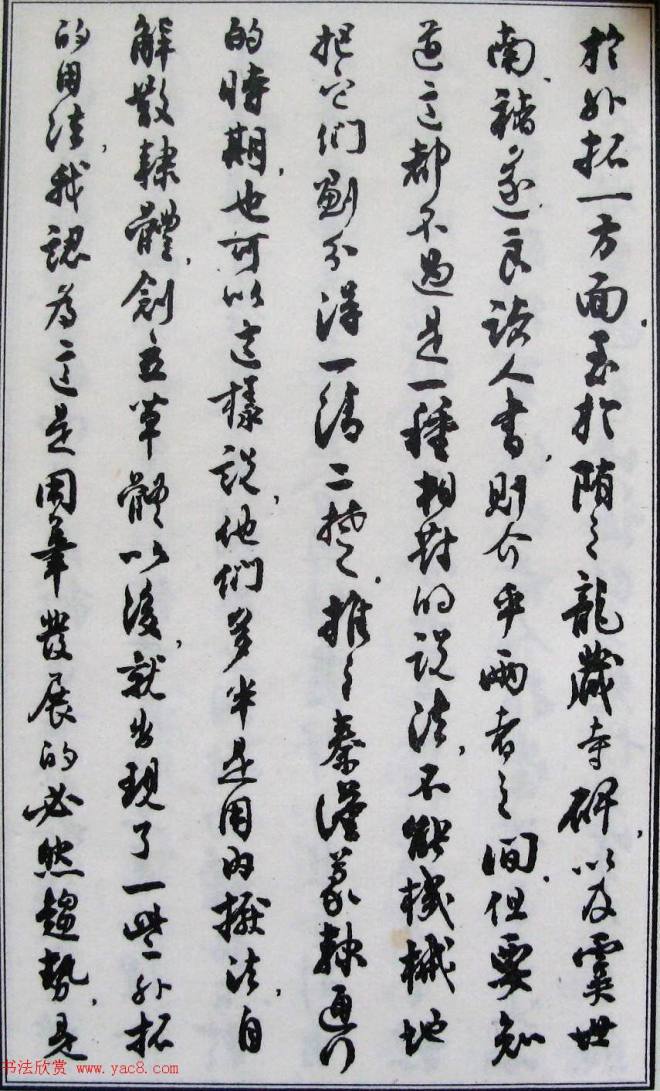 於外拓一方面,至於隋之龍藏寺碑,以及虞世
南、褚遂良諸人書,則介乎兩者之間。但要知
道這都不過是一種相對的説法,不能機械地
把它們劃分得一清二楚。推之秦漢篆隸通行
的時期,也可以這樣説,他們多半是用内擫法,自
解散隸體,創立草體以後,就出現了一些外拓
的用法,我認為這是用筆發展的必然趨勢,是
书法欣赏 www.yac8.com